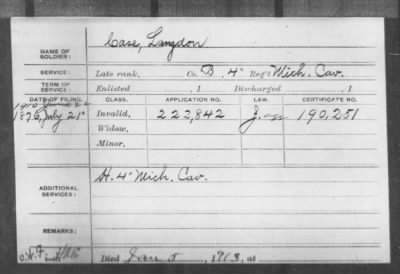 NAME OF SOLDIER: Case, Langdon
SERVICE: Late rank, Co. B, 4" Reg't Mich. Cav.
TERM OF SERVICE: Enlisted , 1 Discharged , 1
DATE OF FILING. CLASS. APPLICATION NO. LAW. CERTIFICATE NO.
1876, July 21" Invalid, 222,842 190,251
Widow,
Minor,
ADDITIONAL SERVICES: H. 4" Mich. Cav.
REMARKS:
Died Jan 5, 1913, at